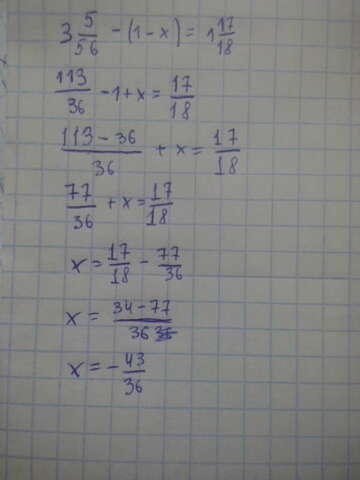 3 5/56 - (1 - x) = 1 17/18
113/36 - 1 + x = 17/18
(113 - 36)/36 + x = 17/18
77/36 + x = 17/18
x = 17/18 - 77/36
x = (34 - 77)/36
x = - 43/36